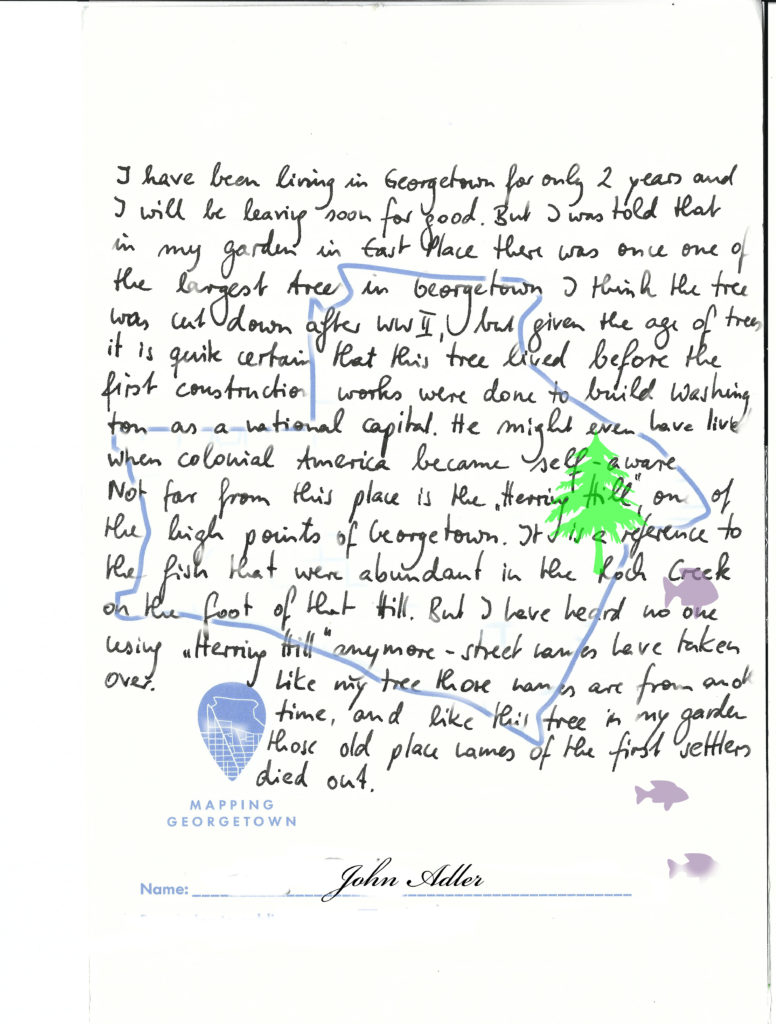 I have been living in Georgetown for only 2 years and
I will be leaving soon for good. But I was told that
in my garden in East Place there was once one of
the largest tree in Georgetown I think the tree
was cut down after WW II, but given the age of trees
it is quite certain that this tree lived before the
first construction works were done to build Washing
ton as a national capital. He might even have live
when colonial America became self-aware
Not far from this place is the „Herring Hill", one of
the high points of Georgetown. It is a reference to
the fish that were abundant in the Rock Creek
on the foot of that Hill. But I have heard no one
using „Herring Hill" anymore - street names have taken
over. Like my tree those names are from
time, and like this tree in my garden
those old place names of the first settlers
died out.
MAPPING
GEORGETOWN
Name: John Adler